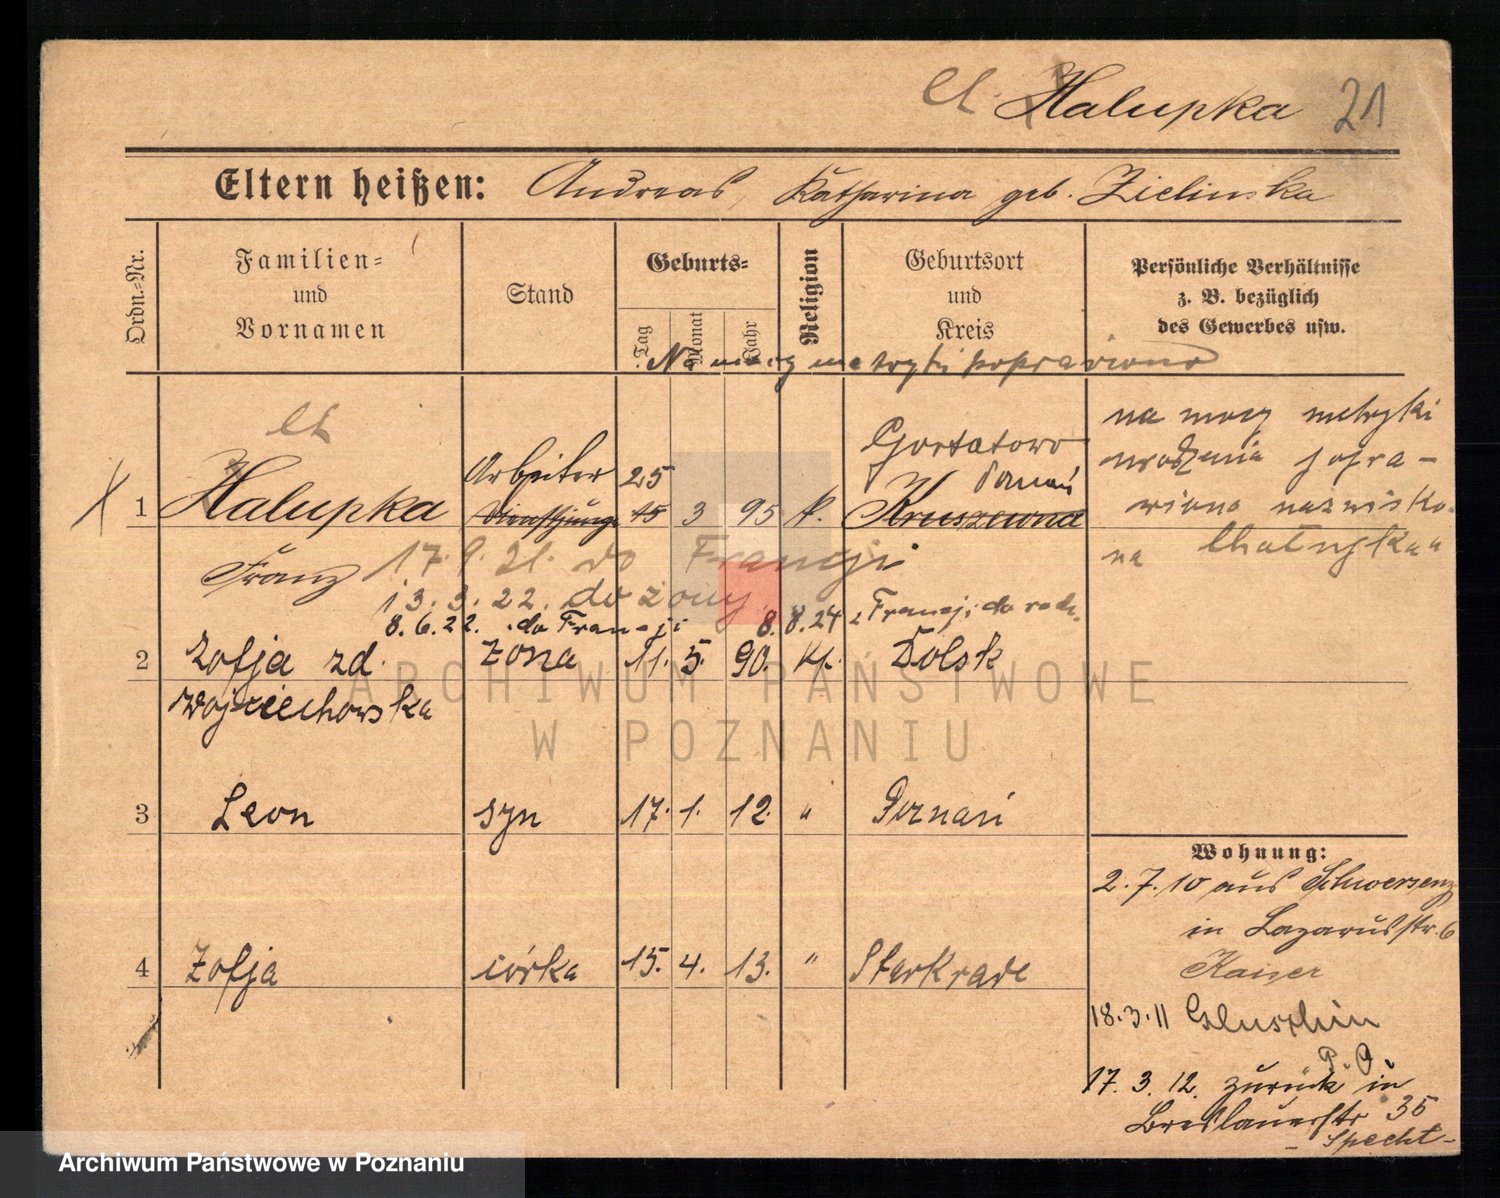 Ch. Halupka 21
Eltern heißen: Andreas, Katharina geb. Zielinska
Ordn.=Nr.
Familien=
und
Vornamen
Stand
Geburts=
Tag
Monat
Jahr
Religion
Geburtsort
und
Kreis
Persönliche Verhältnisse
z. B. bezüglich
des Gewerbes usw.
Na mocy metryki poprawiono
Ch
1 Halupka
Franz
Arbeiter
25
15 3 95 k.
Gortatowo
Poznań
Kruszewna
na mocy metryki
urodzenia popra-
wiono nazwisko
na
17.9.21. do Francji
13.3.22. do żony
8.6.22. do Francji
8.8.24 z Francji do
2 Zofja zd. żona 11. 5. 90. kt. Dolsk
Wojciechowska
3 Leon syn 17. 1. 12. " Poznań
4 Zofja córka 15. 4. 13. " Sterkrade
Wohnung:
2.7.10 aus Schwersenz
in Lazarusstr. 6
Kaiser
18.3.11
P. O.
17.3.12. zurück in
Breslauerstr 35
- Specht -
ARCHIWUM PAŃSTWOWE
W POZNANIU
Archiwum Państwowe w Poznaniu